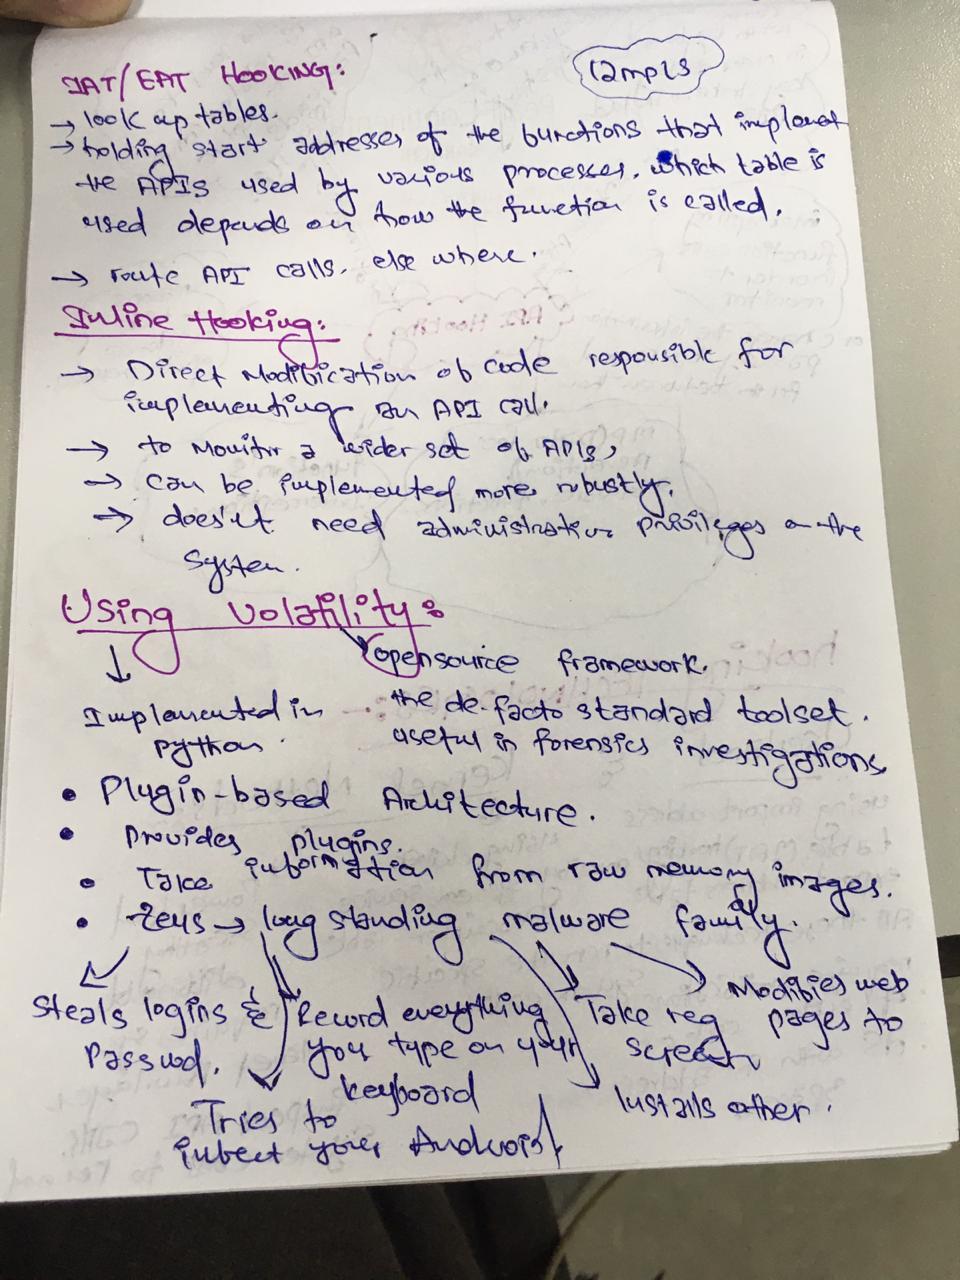 IAT/EAT HOOKING:
→ look up tables.
→ holding start addresses of the functions that implement
the APIs used by various processes. which table is
used depends on how the function is called.
→ route API calls. else where.
Inline Hooking:
→ Direct Modification of code responsible for
implementing an API call.
→ to monitor a wider set of APIs,
→ can be implemented more robustly.
→ does'nt need administrative privileges on the
System.
Using volatility:
opensource framework.
Implemented in
python.
the de-facto standard toolset.
useful in forensics investigations
• Plugin-based Architecture.
• Provides plugins.
• Take information from raw memory images.
• Zeus → long standing malware family.
Steals logins &
Passwd.
Record everything
you type on your
keyboard
Take reg
screen
Modifies web
pages to
Tries to
infect your Android
Installs other.